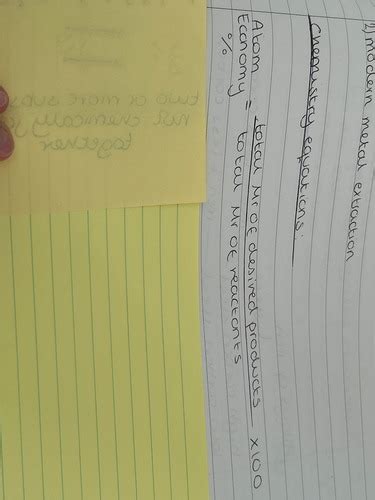 2) modern metal extraction
Chemistry equations:
Atom Economy = total Mr of desired products x100
% total Mr of reactants
two or more subs
not chemically
together